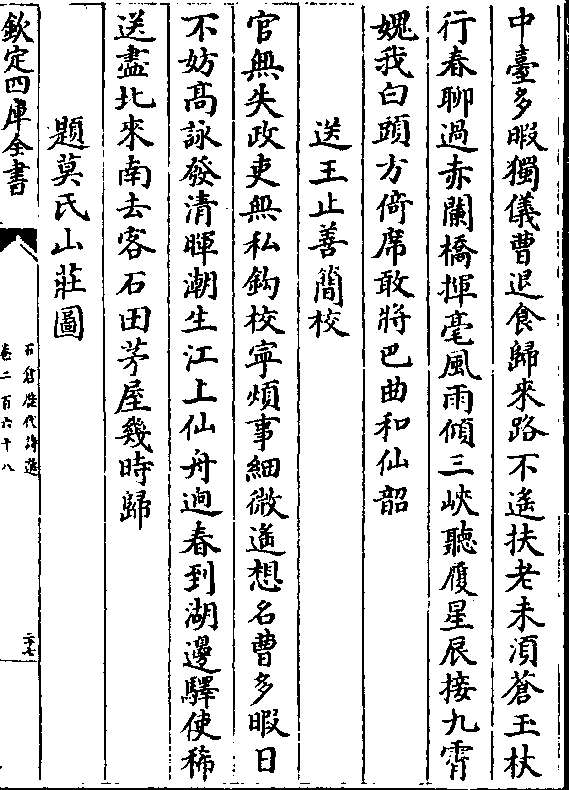 中臺多暇獨儀曹退食歸來路不遙扶老未湏蒼玉杖
行春聊過赤闌橋揮毫風雨傾三峽聽履星辰接九霄
媿我白頭方倚席敢將巴曲和仙韶
送王止善簡校
官無失政吏無私鈎校寜煩事細微遙想名曹多暇日
不妨高詠發清暉潮生江上仙舟逈春到湖邊驛使稀
送盡北來南去客石田茅屋幾時歸
題莫氏山莊圖
欽定四庫全書
石倉歷代詩選
卷二百六十八
二十七